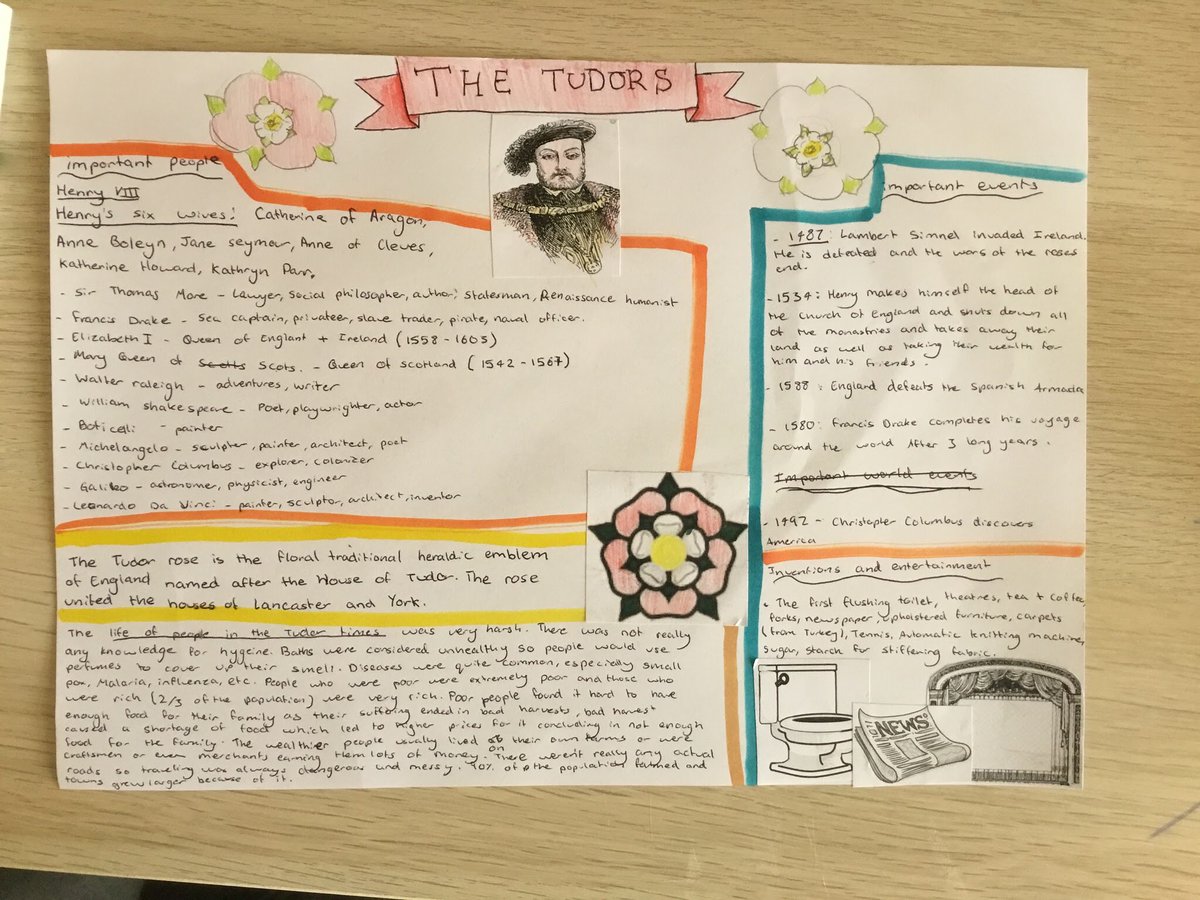 THE TUDORS
important people
Henry VIII
Henry's six wives: Catherine of Aragon,
Anne Boleyn, Jane seymour, Anne of Cleves,
Katherine Howard, Kathryn Parr.
- Sir Thomas More - Lawyer, social philosopher, author, statesman, Renaissance humanist
- Francis Drake - sea captain, privateer, slave trader, pirate, naval officer.
- Elizabeth I - Queen of Englant + Ireland (1558 - 1603)
- Mary Queen of Scotts Scots. - Queen of scotland (1542 - 1567)
- Walter raleigh - adventures, writer
- William shakespeare - Poet, playwrighter, actor
- Boticelli - painter
- Michelangelo - sculpter, painter, architect, poet
- Christopher Columbus - explorer, colonizer
- Galileo - astronomer, physicist, engineer
- Leonardo Da Vinci - painter, sculptor, architect, inventor
The Tudor rose is the floral traditional heraldic emblem
of England named after the House of Tudor. The rose
united the houses of Lancaster and York.
The life of people in the Tudor times was very harsh. There was not really
any knowledge for hygeine. Baths were considered unhealthy so people would use
perfumes to cover up their smell. Diseases were quite common, especially small
pox, Malaria, influenza, etc. People who were poor were extremely poor and those who
were rich (2/3 of the population) were very rich. Poor people found it hard to have
enough food for their family as their suffering ended in bad harvests, bad harvest
caused a shortage of food which led to higher prices for it concluding in not enough
food for the family. The wealthier people usually lived on their own farms or were
craftsmen or even merchants earning them lots of money. There weren't really any actual
roads so traveling was always dangerous and messy. 90% of the population farmed and
towns grew larger because of it.
important events
- 1487: Lambert Simnel invaded Ireland.
He is defeated and the wars of the roses
end.
- 1534: Henry makes himself the head of
the church of England and shuts down all
of the monastries and takes away their
land as well as taking their wealth for
him and his friends.
- 1588: England defeats the Spanish Armada
- 1580: Francis Drake completes his voyage
around the world After 3 long years.
Important world events
- 1492 - Christopter Columbus discovers
America
Inventions and entertainment
• The first flushing toilet, theatres, tea + coffee,
forks, newspaper, upholstered furniture, carpets
(from Turkey), Tennis, Automatic knitting machine,
sugar, starch for stiffening fabric.
NEWS